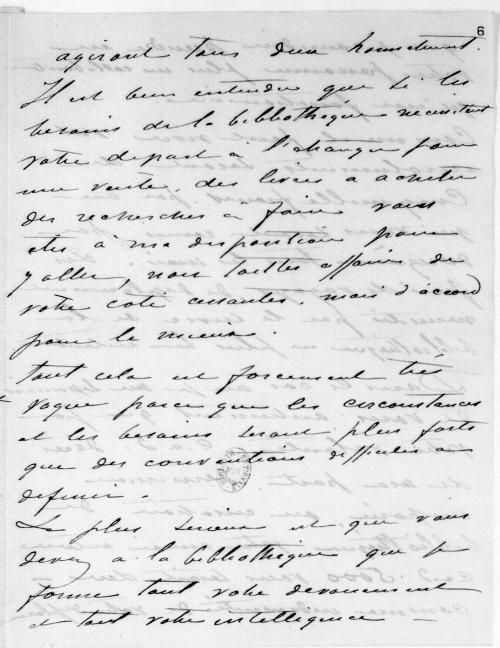 6
agiront tous deux honnetement.
Il est bien entendu que si les
besoins de la bibliothèque necessitent
votre depart à l'étranger pour
une vente, des livres a acheter
des recherches à faire vous
etes à ma disposition pour
y aller, nos toutes affaires de
votre coté cessantes. mais d'accord
pour le mieux.
tout cela est forcement très
vague parce que les circonstances
et les besoins seront plus forts
que des conventions difficiles a
definir.
Le plus serieux est que vous
devez a la bibliothèque que je
forme tout votre devouement
et tout votre intelligence